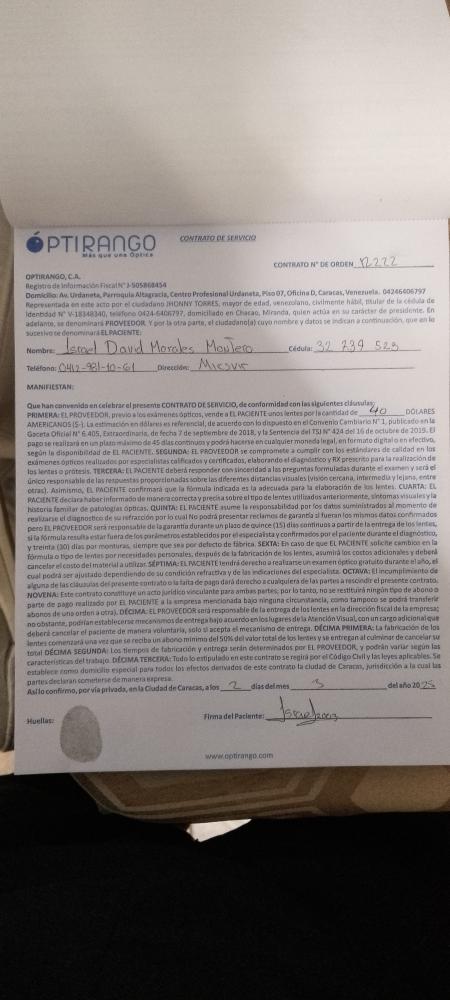 ÓPTIRANGO
Más que una Óptica
CONTRATO DE SERVICIO
CONTRATO N° DE ORDEN 12222
OPTIRANGO, C.A.
Registro de Información Fiscal N° J-505868454
Domicilio: Av. Urdaneta, Parroquia Altagracia, Centro Profesional Urdaneta, Piso 07, Oficina D, Caracas, Venezuela. 04246406797
Representada en este acto por el ciudadano JHONNY TORRES, mayor de edad, venezolano, civilmente hábil, titular de la cédula de
Identidad N° V-18348340, teléfono 0424-6406797, domiciliado en Chacao, Miranda, quien actúa en su carácter de presidente. En
adelante, se denominará PROVEEDOR. Y por la otra parte, el ciudadano(a) cuyo nombre y datos se indican a continuación, que en lo
sucesivo se denominará EL PACIENTE:
Nombre: Israel David Morales Montero Cédula: 32 739 523
Teléfono: 0412-981-10-61 Dirección:
MANIFIESTAN:
Que han convenido en celebrar el presente CONTRATO DE SERVICIO, de conformidad con las siguientes cláusulas:
PRIMERA: EL PROVEEDOR, previo a los exámenes ópticos, vende a EL PACIENTE unos lentes por la cantidad de 40 DÓLARES
AMERICANOS ($-). La estimación en dólares es referencial, de acuerdo con lo dispuesto en el Convenio Cambiario N° 1, publicado en la
Gaceta Oficial N° 6.405, Extraordinaria, de fecha 7 de septiembre de 2018, y la Sentencia del TSJ N° 424 del 16 de octubre de 2019. El
pago se realizará en un plazo máximo de 45 días continuos y podrá hacerse en cualquier moneda legal, en formato digital o en efectivo,
según la disponibilidad de EL PACIENTE. SEGUNDA: EL PROVEEDOR se compromete a cumplir con los estándares de calidad en los
exámenes ópticos realizados por especialistas calificados y certificados, elaborando el diagnóstico y RX prescrito para la realización de
los lentes o prótesis. TERCERA: EL PACIENTE deberá responder con sinceridad a las preguntas formuladas durante el examen y será el
único responsable de las respuestas proporcionadas sobre las diferentes distancias visuales (visión cercana, intermedia y lejana, entre
otras). Asimismo, EL PACIENTE confirmará que la fórmula indicada es la adecuada para la elaboración de los lentes. CUARTA: EL
PACIENTE declara haber informado de manera correcta y precisa sobre el tipo de lentes utilizados anteriormente, síntomas visuales y la
historia familiar de patologías ópticas. QUINTA: EL PACIENTE asume la responsabilidad por los datos suministrados al momento de
realizarse el diagnostico de su refracción por lo cual No podrá presentar reclamos de garantía si fueran los mismos datos confirmados
pero EL PROVEEDOR será responsable de la garantía durante un plazo de quince (15) días continuos a partir de la entrega de los lentes,
si la fórmula resulta estar fuera de los parámetros establecidos por el especialista y confirmados por el paciente durante el diagnóstico,
y treinta (30) días por monturas, siempre que sea por defecto de fábrica. SEXTA: En caso de que EL PACIENTE solicite cambios en la
fórmula o tipo de lentes por necesidades personales, después de la fabricación de los lentes, asumirá los costos adicionales y deberá
cancelar el costo del material a utilizar. SÉPTIMA: EL PACIENTE tendrá derecho a realizarse un examen óptico gratuito durante el año, el
cual podrá ser ajustado dependiendo de su condición refractiva y de las indicaciones del especialista. OCTAVA: El incumplimiento de
alguna de las cláusulas del presente contrato o la falta de pago dará derecho a cualquiera de las partes a rescindir el presente contrato.
NOVENA: Este contrato constituye un acto jurídico vinculante para ambas partes; por lo tanto, no se restituirá ningún tipo de abono o
parte de pago realizado por EL PACIENTE a la empresa mencionada bajo ninguna circunstancia, como tampoco se podrá transferir
abonos de uno orden a otra). DÉCIMA: EL PROVEEDOR será responsable de la entrega de los lentes en la dirección fiscal de la empresa;
no obstante, podrían establecerse mecanismos de entrega bajo acuerdo en los lugares de la Atención Visual, con un cargo adicional que
deberá cancelar el paciente de manera voluntaria, solo si acepta el mecanismo de entrega. DÉCIMA PRIMERA: La fabricación de los
lentes comenzará una vez que se reciba un abono mínimo del 50% del valor total de los lentes y se entregan al culminar de cancelar su
total DÉCIMA SEGUNDA: Los tiempos de fabricación y entrega serán determinados por EL PROVEEDOR, y podrán variar según las
características del trabajo. DÉCIMA TERCERA: Todo lo estipulado en este contrato se regirá por el Código Civil y las leyes aplicables. Se
establece como domicilio especial para todos los efectos derivados de este contrato la ciudad de Caracas, jurisdicción a la cual las
partes declaran someterse de manera expresa.
Así lo confirmo, por vía privada, en la Ciudad de Caracas, a los 2 días del mes 3 del año 2025
Huellas:
Firma del Paciente:
www.optirango.com